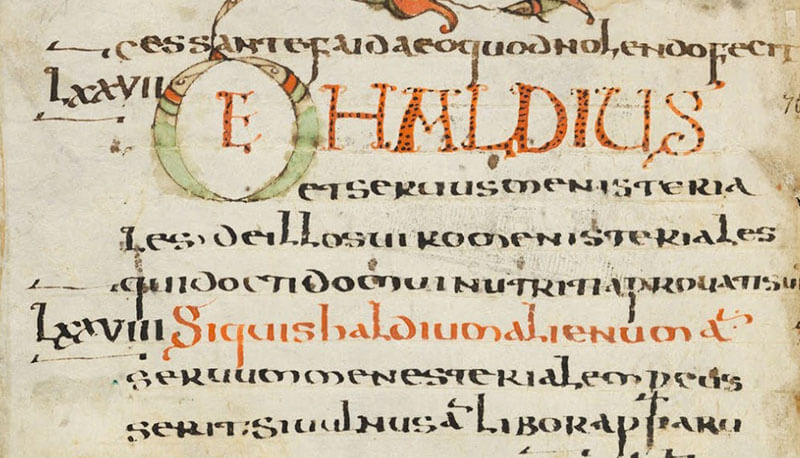 cessante faida eo quod nolendo fecit
LXXVII DE HALDIUS
et seruus menisteria
les; de illos uiro menisteriales
qui docti domui nutriti aprouati su
LXXVIII Si quis haldium alienum a
seruum menesterialem pcus
serit: si uulnus a libor apparu